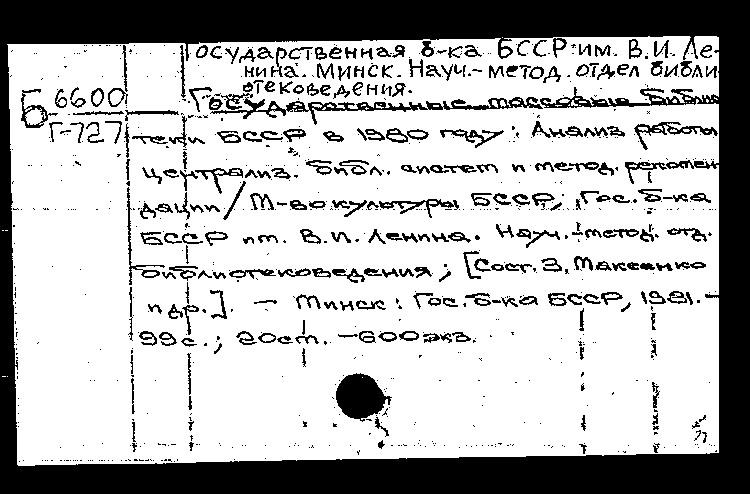 Государственная б-ка БССР им. В.И. Ле-
нина. Минск. Науч.-метод. отдел библи
отековедения.
Б 6600
Г-727
Государственные массовые библио
теки БССР в 1980 году: Анализ работы
централиз. библ. систем и метод. рекомен
дации / М-во культуры БССР, Гос. б-ка
БССР им. В.И. Ленина. Науч.-метод. отд.
библиотековедения; [Сост. З. Максенко
и др.]. — Минск: Гос. б-ка БССР, 1981. —
99 с.; 20 см. — 600 экз.